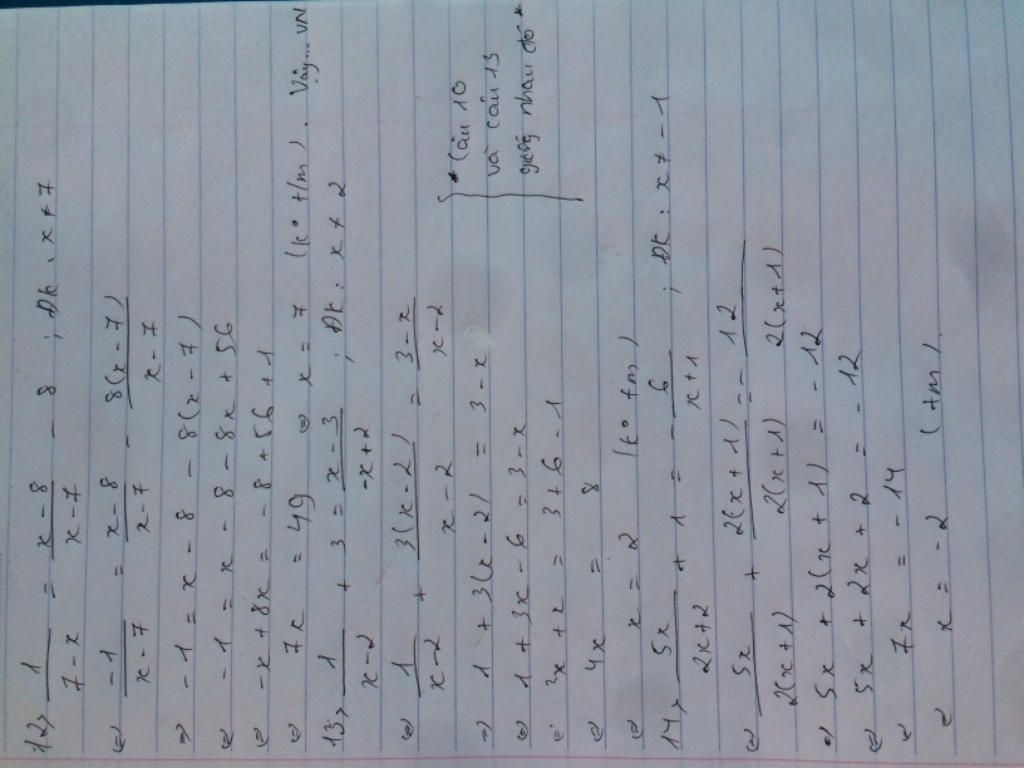 12> 1/(7-x) = (x-8)/(x-7) - 8 ; Đk: x ≠ 7
⇔ -1/(x-7) = (x-8)/(x-7) - 8(x-7)/(x-7)
⇒ -1 = x - 8 - 8(x-7)
⇔ -1 = x - 8 - 8x + 56
⇔ -x + 8x = -8 + 56 + 1
⇔ 7x = 49 ⇔ x = 7 (k° t/m). Vậy... VN
13> 1/(x-2) + 3 = (x-3)/(-x+2) ; Đk: x ≠ 2
⇔ 1/(x-2) + 3(x-2)/(x-2) = (3-x)/(x-2)
⇒ 1 + 3(x-2) = 3-x
⇔ 1 + 3x - 6 = 3-x
⇔ 3x + x = 3 + 6 - 1
⇔ 4x = 8
⇔ x = 2 (k° tm)
* Câu 10
và câu 13
giống nhau đó *
14> 5x/(2x+2) + 1 = - 6/(x+1) ; Đk: x ≠ -1
⇔ 5x/2(x+1) + 2(x+1)/2(x+1) = - 12/2(x+1)
⇒ 5x + 2(x+1) = -12
⇔ 5x + 2x + 2 = -12
⇔ 7x = -14
⇔ x = -2 (tm).